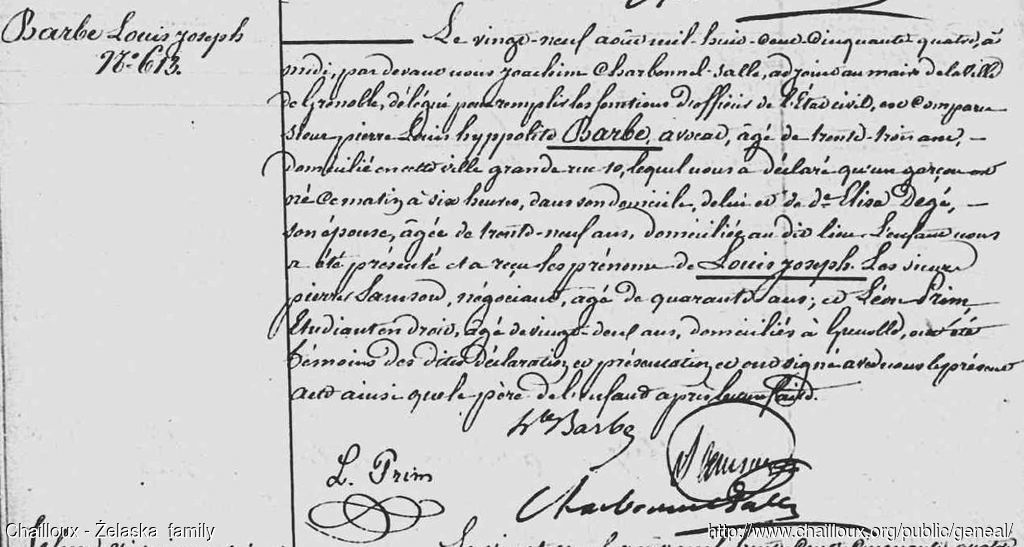 Barbe Louis joseph
N.o 613.
Le vingt-neuf août mil-huit-cent cinquante quatre, à
midi, par devant nous joachim Charbonnel-Salle, adjoint au maire de la ville
de Grenoble, délégué pour remplir les fonctions d'officier de l'Etat civil, est comparu
sieur pierre Louis hyppolite Barbe, avocat, âgé de trente-trois ans, –
domicilié en cette ville grande rue 10, lequel nous a déclaré qu'un garçon est
né ce matin à six heures, dans son domicile, de lui et de de Elisa Degé, –
son épouse, âgée de trente-neuf ans, domiciliée au dit lieu. L'enfant nous
a été présenté et a reçu les prénoms de Louis joseph. Les sieurs
pierre Samson, négociant, âgé de quarante ans; et Léon Prim
Etudiant en droit, âgé de vingt-deux ans, domiciliés à Grenoble, ont été
témoins des dites déclaration et présentation et ont signé avec nous le présent
acte ainsi que le père de l'enfant après lecture faite.
hte Barbe
L. Prim
Samson
Charbonnel Salle
Chailloux - Želaska family
http://www.chailloux.org/public/geneal/